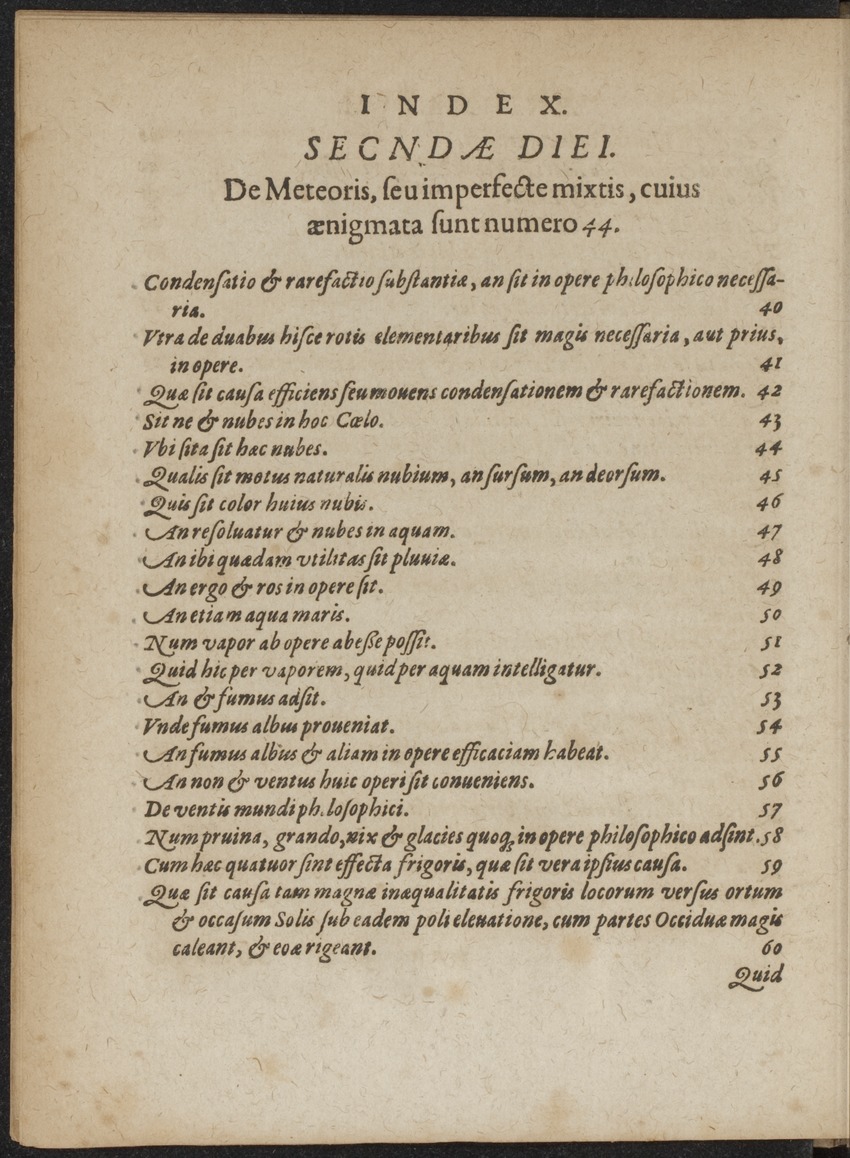 INDEX.
SECNDÆ DIEI.
De Meteoris, ſeu imperfecte mixtis, cuius
ænigmata ſunt numero 44.
Condenſatio & rarefactio ſubſtantiæ, an ſit in opere philoſophico neceſſa-
ria. 40
Vtra de duabus hiſce rotis elementaribus ſit magis neceſſaria, aut prius,
in opere. 41
Quæ ſit cauſa efficiens ſeu mouens condenſationem & rarefactionem. 42
Sit ne & nubes in hoc Cœlo. 43
Vbi ſita ſit hæc nubes. 44
Qualis ſit motus naturalis nubium, an ſurſum, an deorſum. 45
Quis ſit color huius nubis. 46
An reſoluatur & nubes in aquam. 47
An ibi quædam vtilitas ſit pluuiæ. 48
An ergo & ros in opere ſit. 49
An etiam aqua maris. 50
Num vapor ab opere abeſſe poſſit. 51
Quid hic per vaporem, quid per aquam intelligatur. 52
An & fumus adſit. 53
Vnde fumus albus proueniat. 54
An fumus albus & aliam in opere efficaciam habeat. 55
An non & ventus huic operi ſit conueniens. 56
De ventis mundi ph.loſophici. 57
Num pruina, grando, nix & glacies quoq; in opere philoſophico adſint. 58
Cum hæc quatuor ſint effecta frigoris, quæ ſit vera ipſius cauſa. 59
Quæ ſit cauſa tam magnæ inæqualitatis frigoris locorum verſus ortum
& occaſum Solis ſub eadem poli eleuatione, cum partes Occiduæ magis
caleant, & eoæ rigeant. 60
Quid